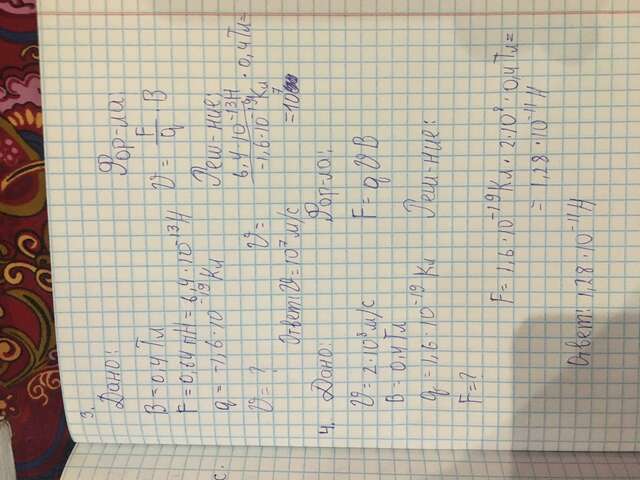 3.
Дано:
B = 0,4 Тл
F = 0,64 пН = 6,4 · 10⁻¹³ Н
q = -1,6 · 10⁻¹⁹ Кл
𝜗 = ?
Фор-ла:
𝜗 = F/q · B
Реш-ние:
𝜗 = 6,4 · 10⁻¹³ Н / -1,6 · 10⁻¹⁹ Кл · 0,4 Тл =
= 10⁷
Ответ: 𝜗 = 10⁷ м/с
4.
Дано:
𝜗 = 2 · 10⁸ м/с
B = 0,4 Тл
q = 1,6 · 10⁻¹⁹ Кл
F = ?
Фор-ла:
F = q𝜗B
Реш-ние:
F = 1,6 · 10⁻¹⁹ Кл · 2 · 10⁸ · 0,4 Тл =
= 1,28 · 10⁻¹¹ Н
Ответ: 1,28 · 10⁻¹¹ Н
с.